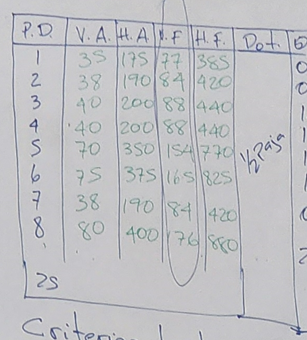 P.D. V.A. H.A V.F H.F. Dot.
1 35 175 77 385 0
2 38 190 84 420 0
3 40 200 88 440 1
4 40 200 88 440 1
5 70 350 154 770 1
6 75 375 165 825 1
7 38 190 84 420
8 80 400 176 880 2
25